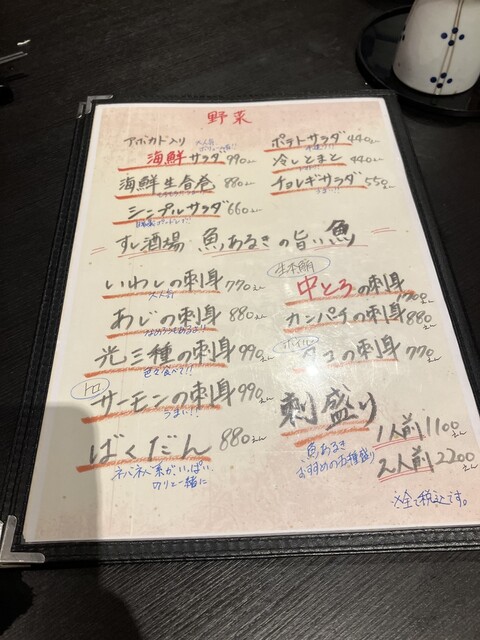 野菜
アボカド入り
大人気
海鮮サラダ 990えん
海鮮生春巻 880えん
シンプルサラダ 660えん
ポテトサラダ 440えん
冷しとまと 440えん
チョレギサラダ 550えん
すし酒場 魚あるきの旨い魚
いわしの刺身 770えん
大人気
あじの刺身 880えん
なめろうもあるよ!!
光三種の刺身 990えん
色々食べて!!
トロ
サーモンの刺身 990えん
うまい!!
ばくだん 880えん
ネバネバ系がいっぱい
のりと一緒に
生本鮪
中とろの刺身
えん
カンパチの刺身 880えん
ボイル
タコの刺身 770えん
刺盛り
1人前 1100えん
2人前 2200えん
魚あるき
おすすめの五種盛り
※全て税込です。